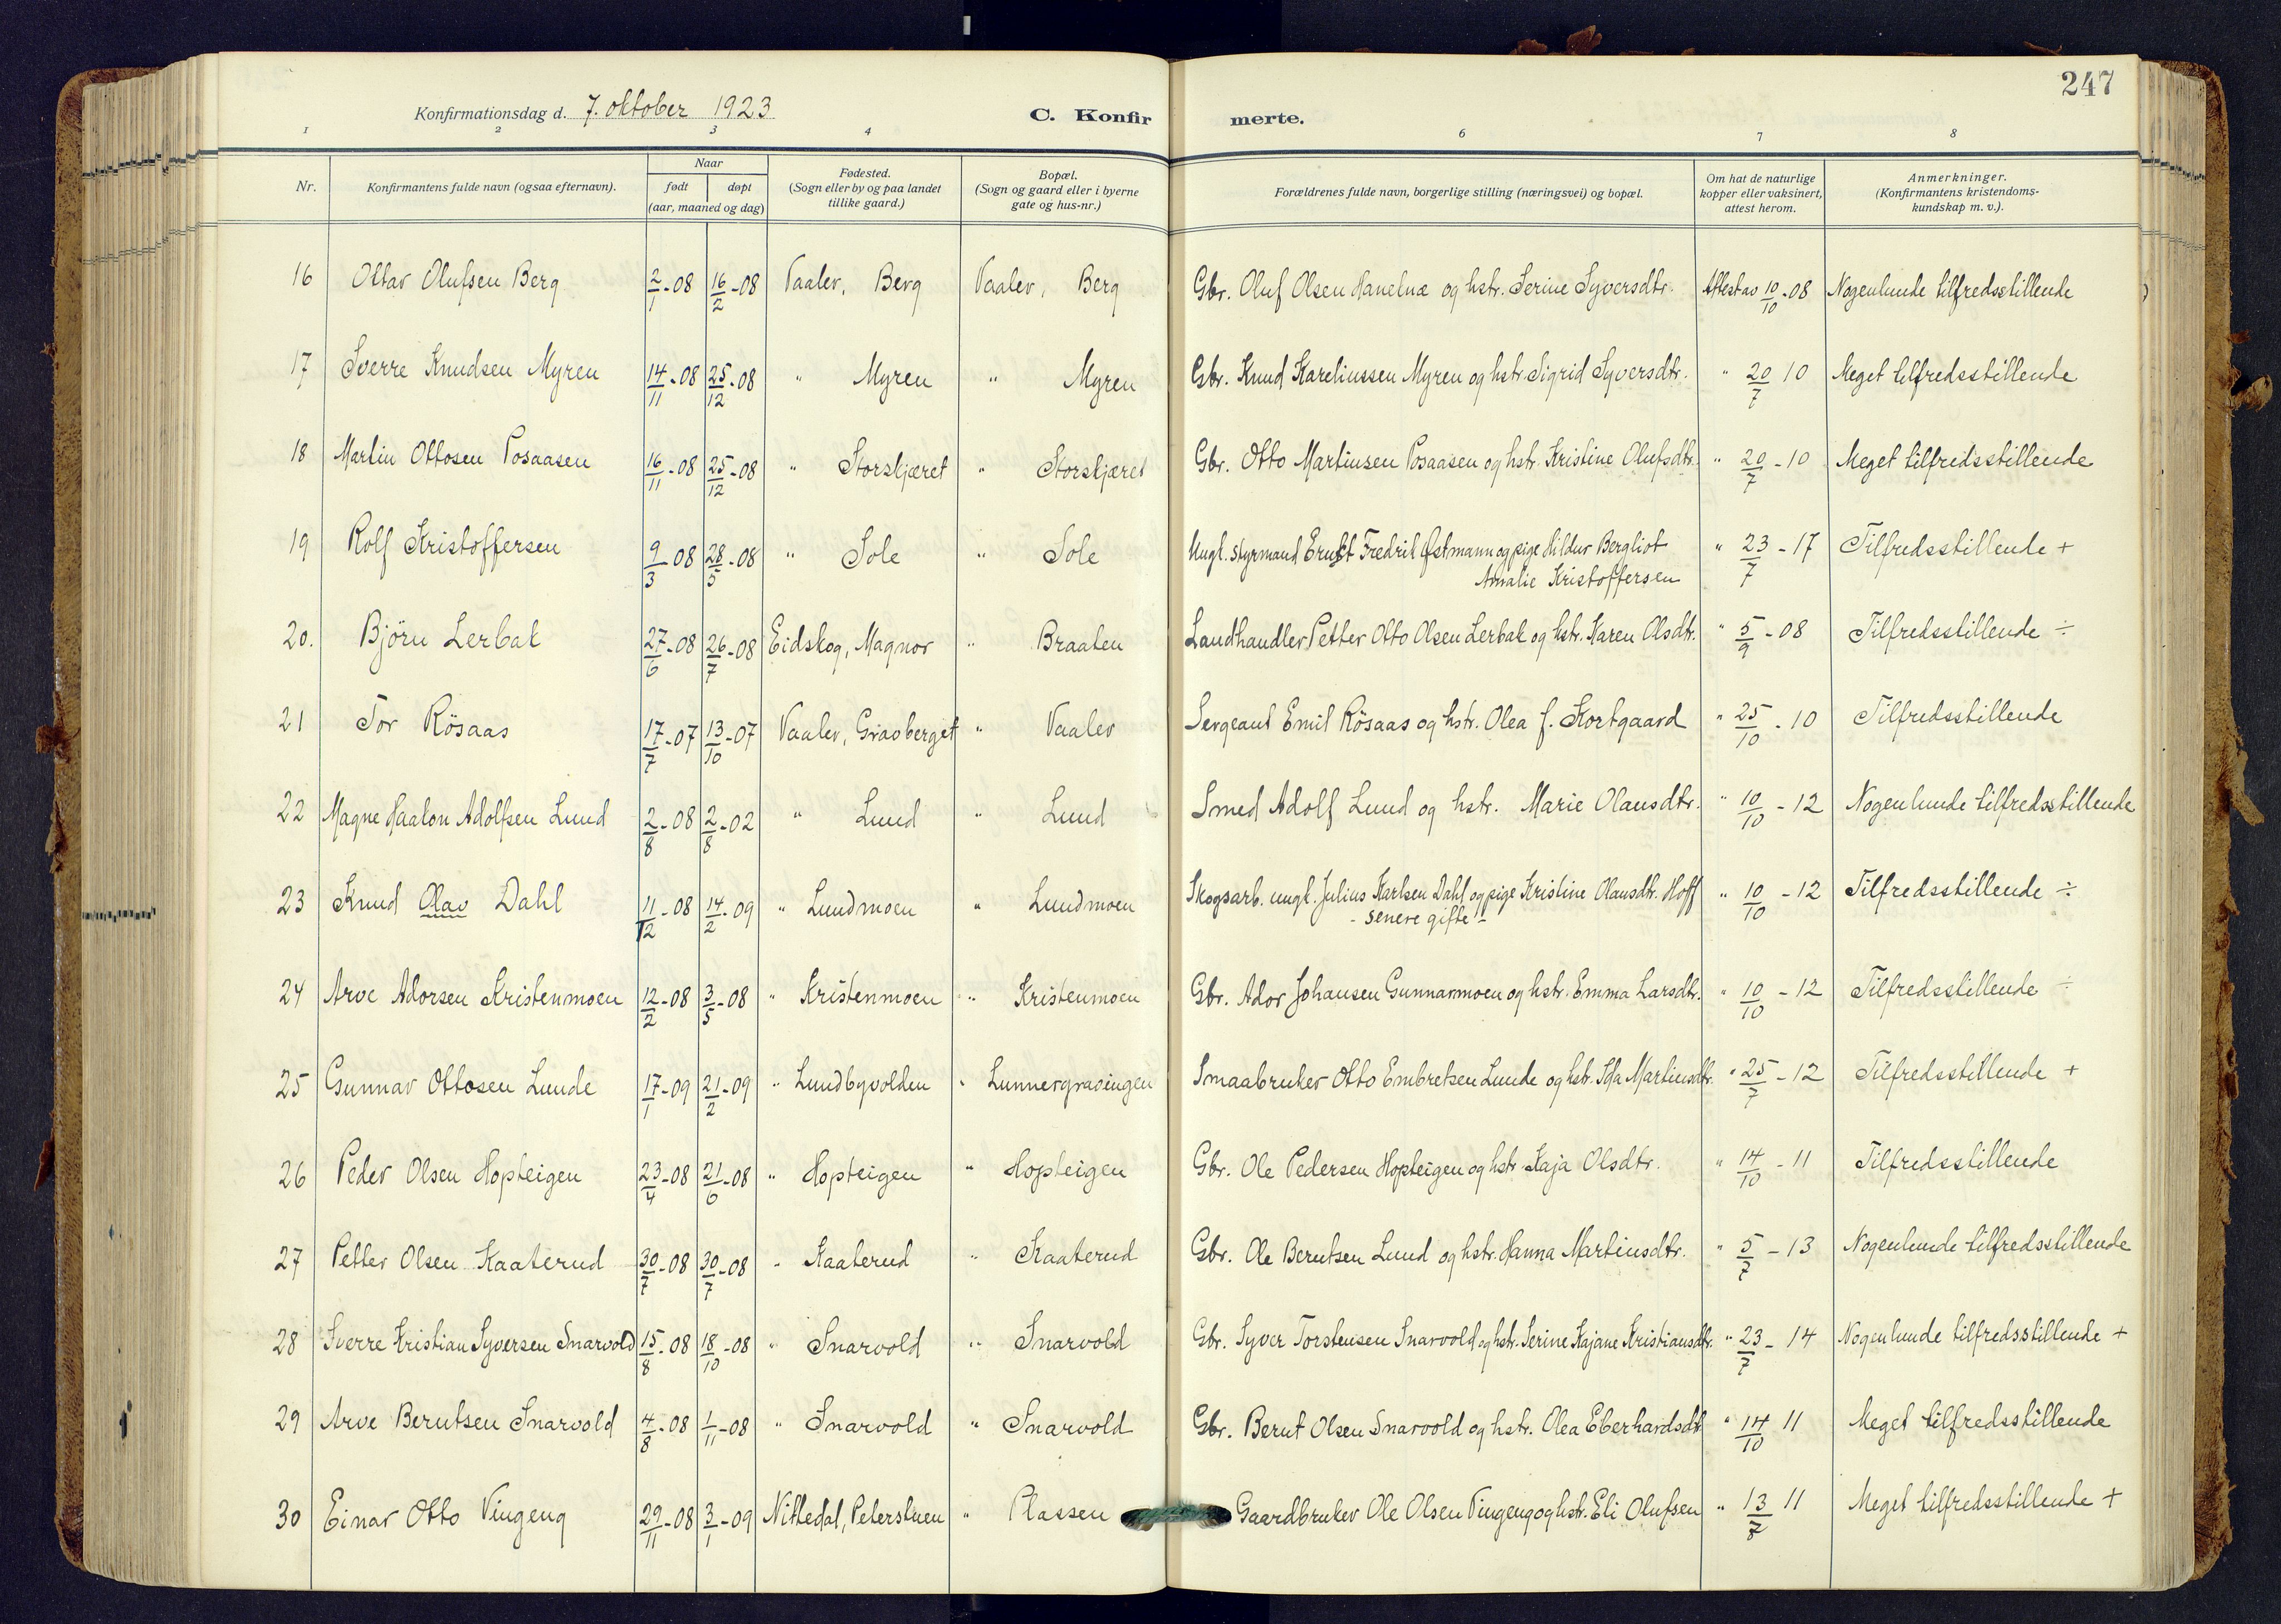 247
Konfirmationsdag d. 7. oktober 1923 C. Konfir merte.
1 2 3 4 6 7 8
Nr. Konfirmantens fulde navn (ogsaa efternavn). Naar født døpt (aar, maaned og dag) Fødested. (Sogn eller by og paa landet tillike gaard.) Bopæl. (Sogn og gaard eller i byerne gate og hus-nr.) Forældrenes fulde navn, borgerlige stilling (næringsvei) og bopæl. Om hat de naturlige kopper eller vaksinert, attest herom. Anmerkninger. (Konfirmantens kristendoms-kundskap m. v.).
16 Ottar Olufsen Berg 2/1-08 16/2-08 Vaaler, Berg Vaaler, Berg Gbr. Oluf Olsen Hanelnæ og hstr. Serine Syversdtr. Attest av 10/10-08 Nogenlunde tilfredsstillende
17 Sverre Knudsen Myren 14/11-08 25/12-08 " Myren " Myren Gbr. Knud Kareliussen Myren og hstr. Sigrid Syversdtr. " 20/7 10 Meget tilfredsstillende
18 Martin Ottosen Posaasen 16/11-08 25/12-08 " Storskjæret " Storskjæret Gbr. Otto Martinsen Posaasen og hstr. Kristine Olufsdtr. " 20/7-10 Meget tilfredsstillende
19 Rolf Kristoffersen 9/3-08 28/5-08 " Sole " Sole Ungk. Styrmand Ernst Fredrik Østmann og pige Hildur Bergliot " 23/7-17 Tilfredsstillende +
Amalie Kristoffersen
20. Björn Lerbak 27/6-08 26/7-08 Eidskog, Magnor " Braaten Landhandler Petter Otto Olsen Lerbak og hstr. Karen Olsdtr. " 5/9-08 Tilfredsstillende ÷
21 Tor Rösaas 17/7-07 13/10-07 Vaaler, Graaberget " Vaaler Sergeant Emil Rösaas og hstr. Olea f. Stortgaard " 25/10-10 Tilfredsstillende
22 Magne Haakon Adolfsen Lund 2/8-08 2/8-02 " Lund " Lund Smed Adolf Lund og hstr. Marie Olausdtr. " 10/10-12 Nogenlunde tilfredsstillende
23 Knud Olav Dahl 11/12-08 14/2-09 " Lundmoen " Lundmoen Skogsarb. ungk. Julius Karlsen Dahl og pige Kristine Olausdtr. Hoff " 10/10-12 Tilfredsstillende ÷
- senere gifte -
24 Arve Adorsen Kristenmoen 12/2-08 3/5-08 " Kristenmoen " Kristenmoen Gbr. Ador Johansen Gunnarmoen og hstr. Emma Larsdtr. " 10/10-12 Tilfredsstillende ÷
25 Gunnar Ottosen Lunde 17/1-09 21/2-09 " Lundbyvolden " Lunnergravingen Smaabruker Otto Embretsen Lunde og hstr. Ida Martinsdtr. " 25/7-12 Tilfredsstillende +
26 Peder Olsen Hopteigen 23/4-08 21/6-08 " Hopteigen " Hopteigen Gbr. Ole Pedersen Hopteigen og hstr. Kaja Olsdtr. " 14/10-11 Tilfredsstillende
27 Petter Olsen Kaaterud 30/7-08 30/7-08 " Kaaterud " Kaaterud Gbr. Ole Berntsen Lund og hstr. Hanna Martinsdtr. " 5/7-13 Nogenlunde tilfredsstillende
28 Sverre Kristian Syversen Snarvold 15/8-08 18/10-08 " Snarvold " Snarvold Gbr. Syver Torstensen Snarvold og hstr. Serine Kajane Kristiansdtr. " 23/7-14 Nogenlunde tilfredsstillende +
29 Arve Berntsen Snarvold 4/8-08 1/11-08 " Snarvold " Snarvold Gbr. Bernt Olsen Snarvold og hstr. Olea Eberhardsdtr " 14/10 11 Meget tilfredsstillende
30 Einar Otto Vingeng 29/11-08 3/1-09 Nittedal, Peterstuen " Plassen Gaardbruker Ole Olsen Vingeng og hstr. Eli Olufsen " 13/7 11 Meget tilfredsstillende +